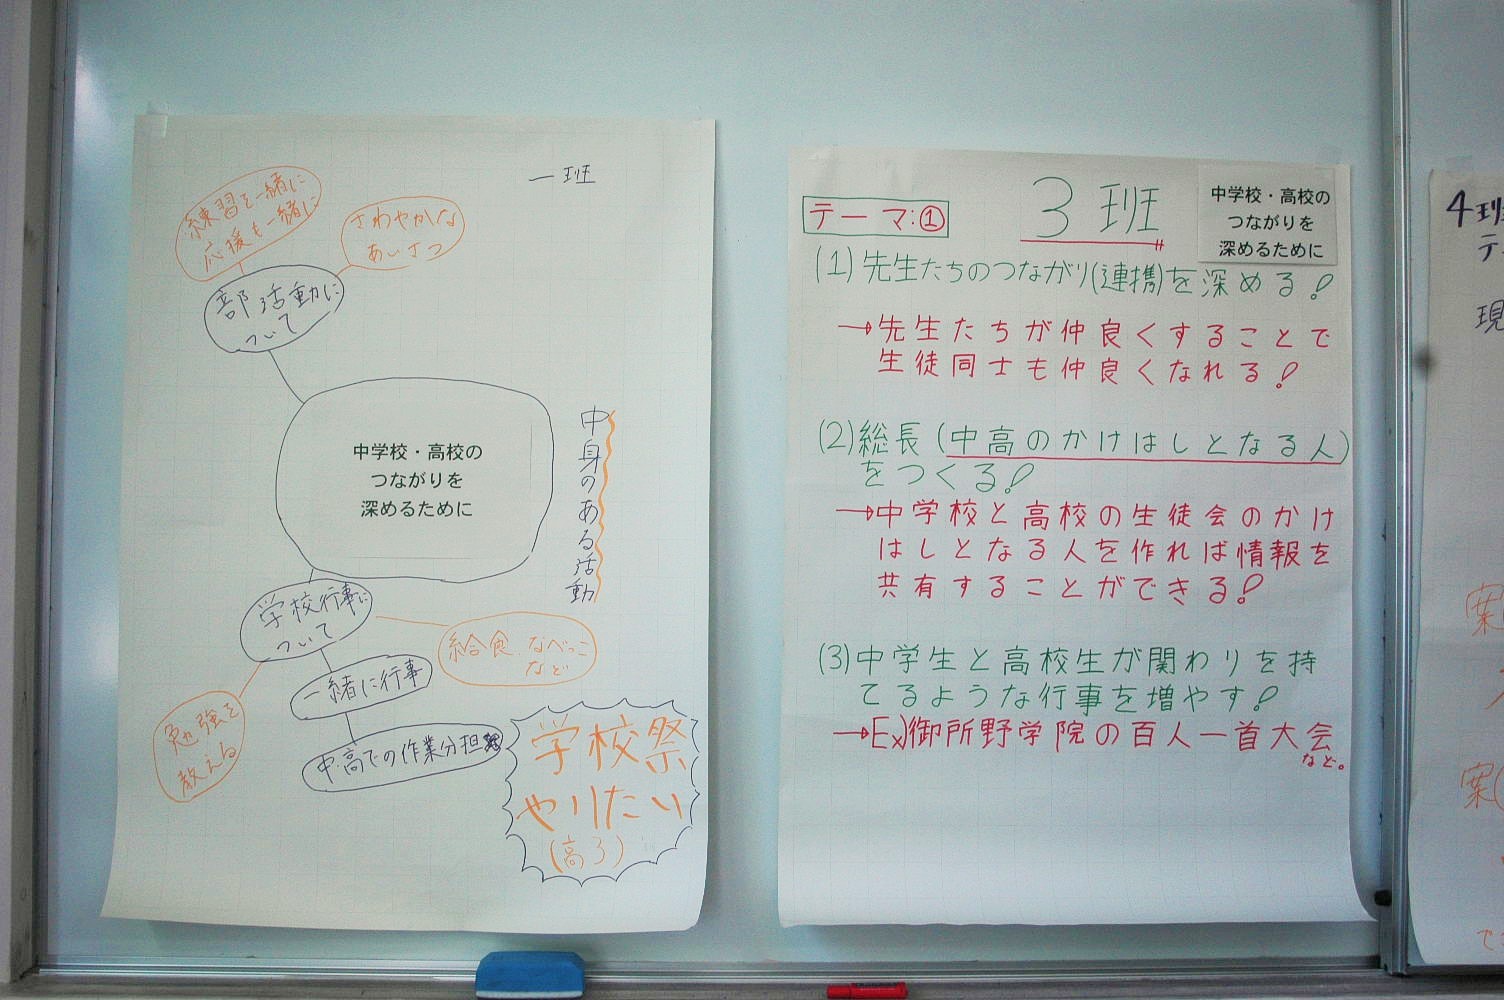 一班
練習を一緒に
応援も一緒に
さわやかな
あいさつ
部活動に
ついて
中学校・高校の
つながりを
深めるために
中身のある活動
学校行事に
ついて
給食、なべっこ
など
一緒に行事
勉強を
教える
中・高での作業分担
学校祭
やりたい
(高3)
テーマ:①
3班
中学校・高校の
つながりを
深めるために
(1)先生たちのつながり(連携)を深める!
→先生たちが仲良くすることで
生徒同士も仲良くなれる!
(2)総長(中高のかけはしとなる人)
をつくる!
→中学校と高校の生徒会のかけ
はしとなる人を作れば情報を
共有することができる!
(3)中学生と高校生が関わりを持
てるような行事を増やす!
→Ex)御所野学院の百人一首大会
など。
4班
テ
現
案(
案(
で